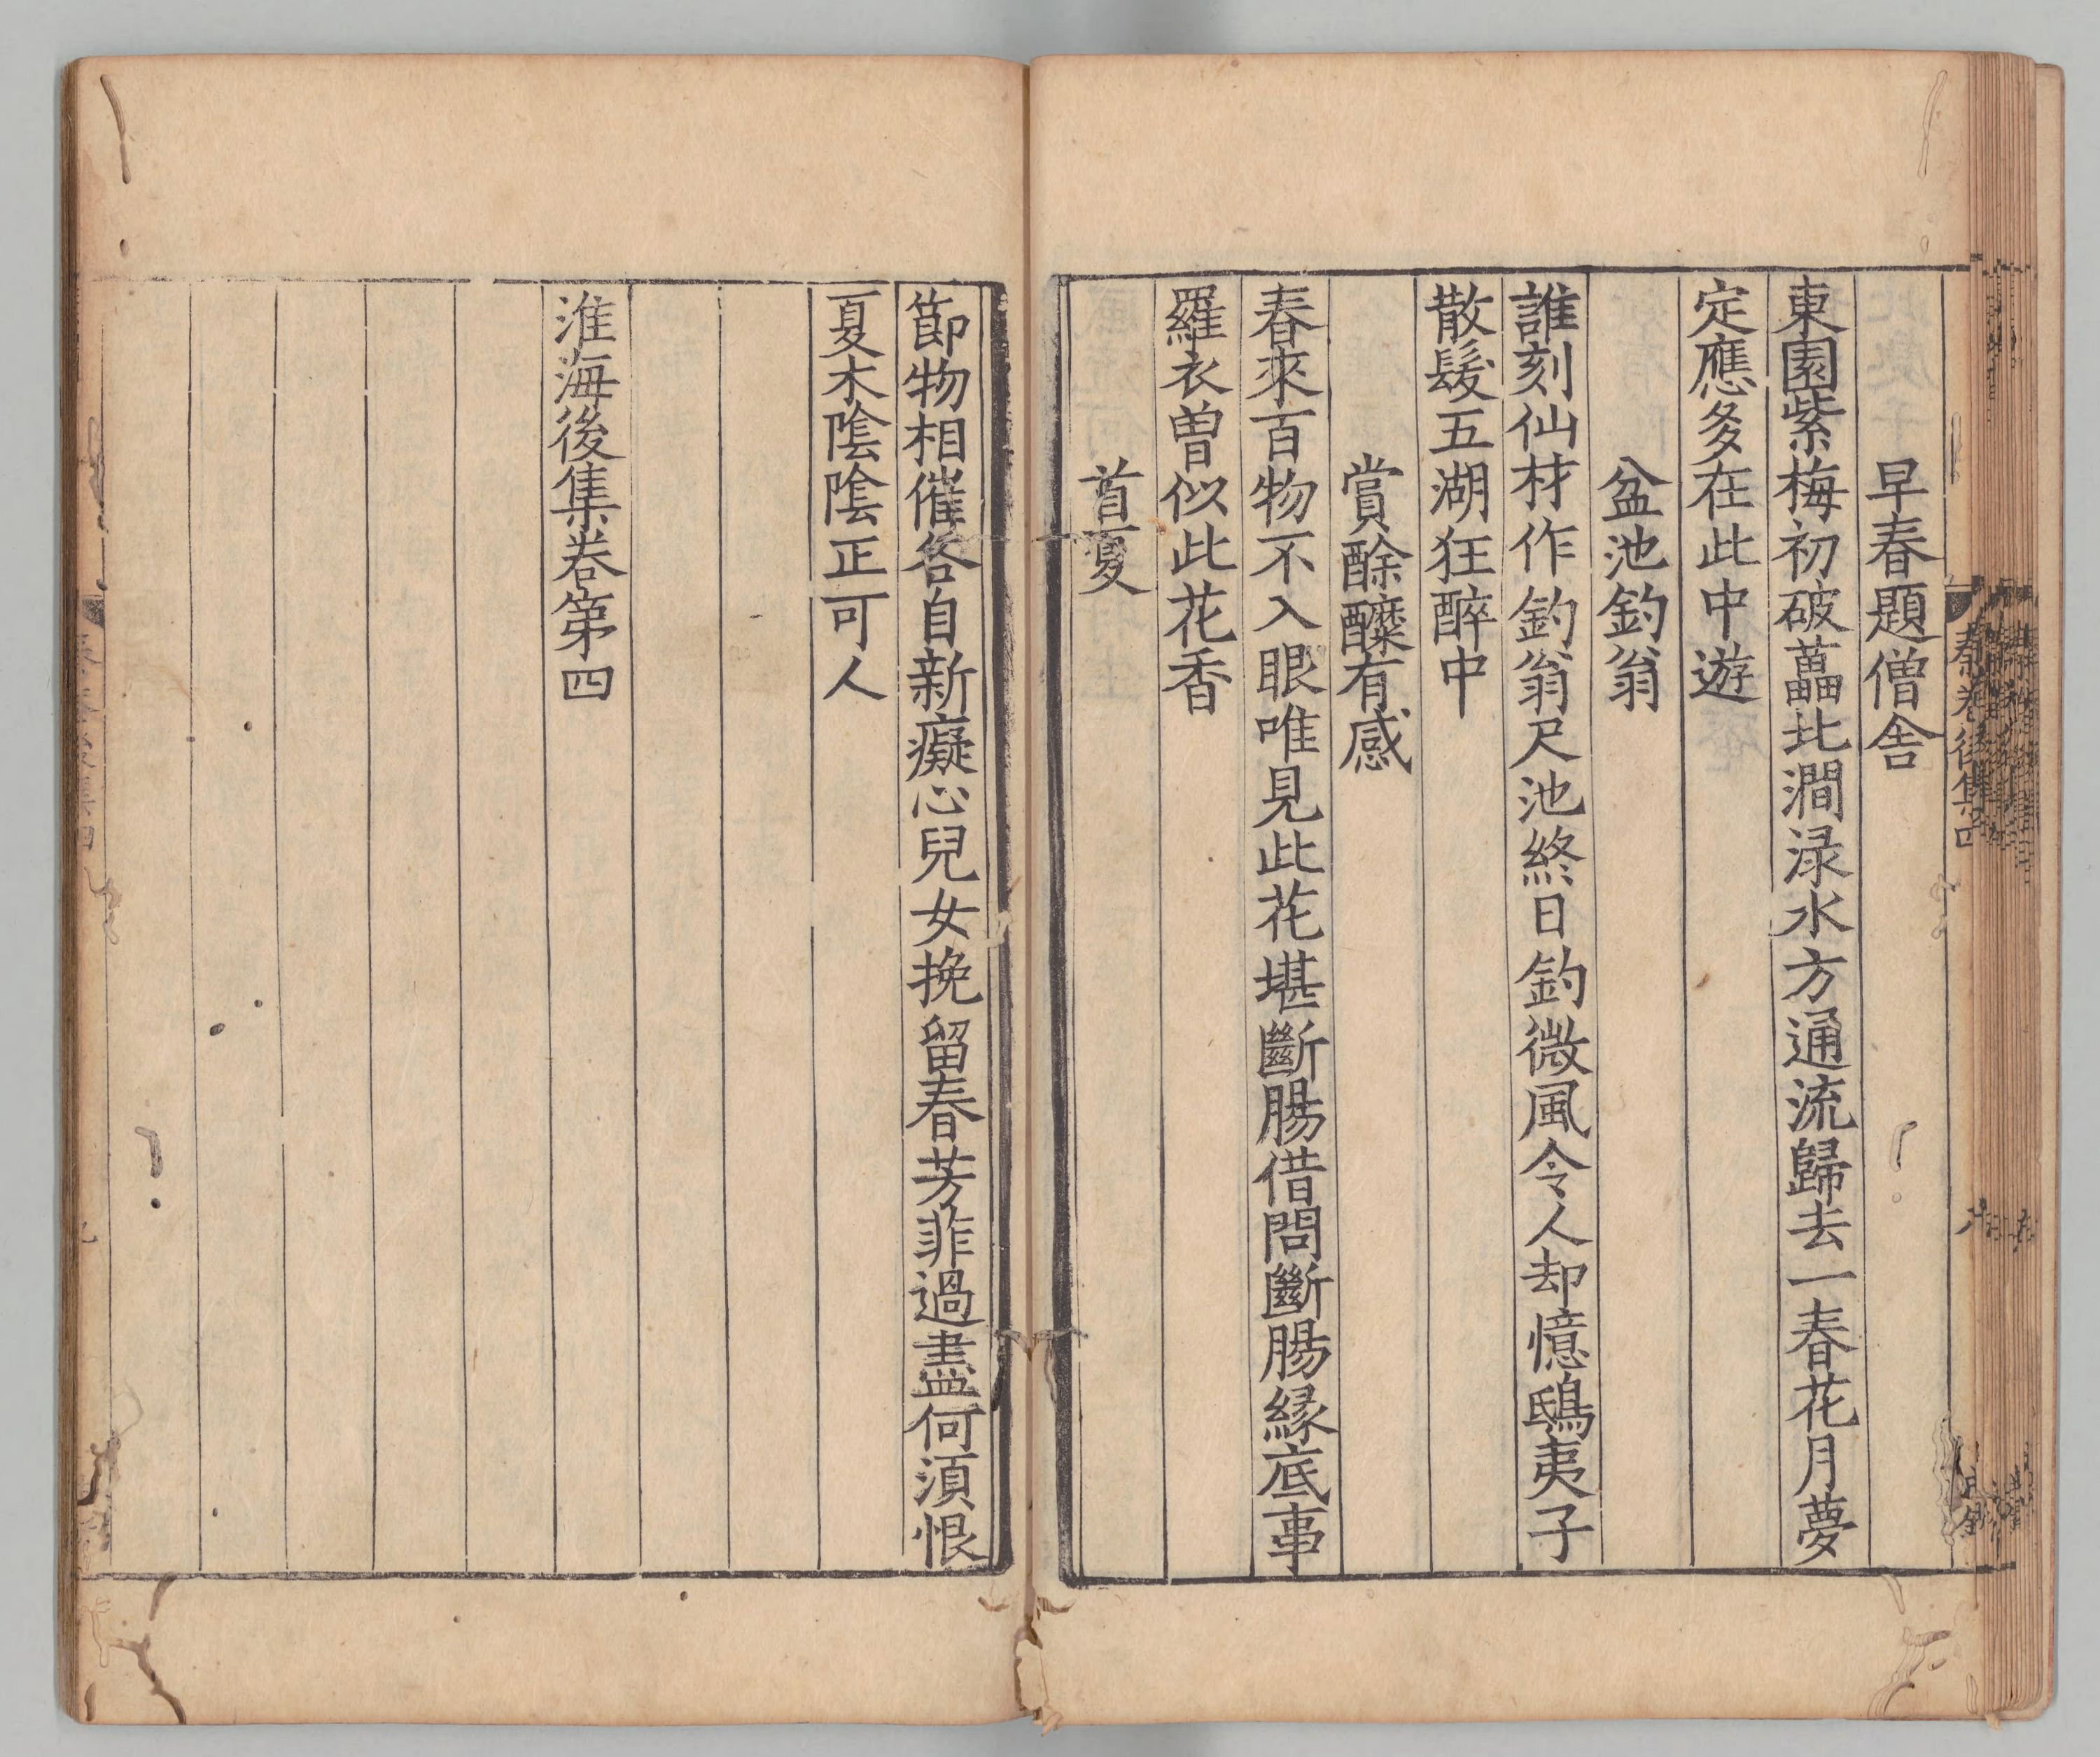 早春題僧舎
東園紫梅初破蘁北澗渌水方通流歸去一春花月夢
定應多在此中遊
盆池釣翁
誰刻仙材作釣翁尺池終日釣微風令人却憶鴟夷子
散髮五湖狂醉中
賞酴醾有感
春來百物不入眼唯見此花堪斷腸借問斷腸緣底事
羅衣曾似此花香
首夏
節物相催各自新癡心兒女挽留春芳菲過盡何須恨
夏木陰陰正可人
淮海後集卷第四
秦卷後集四